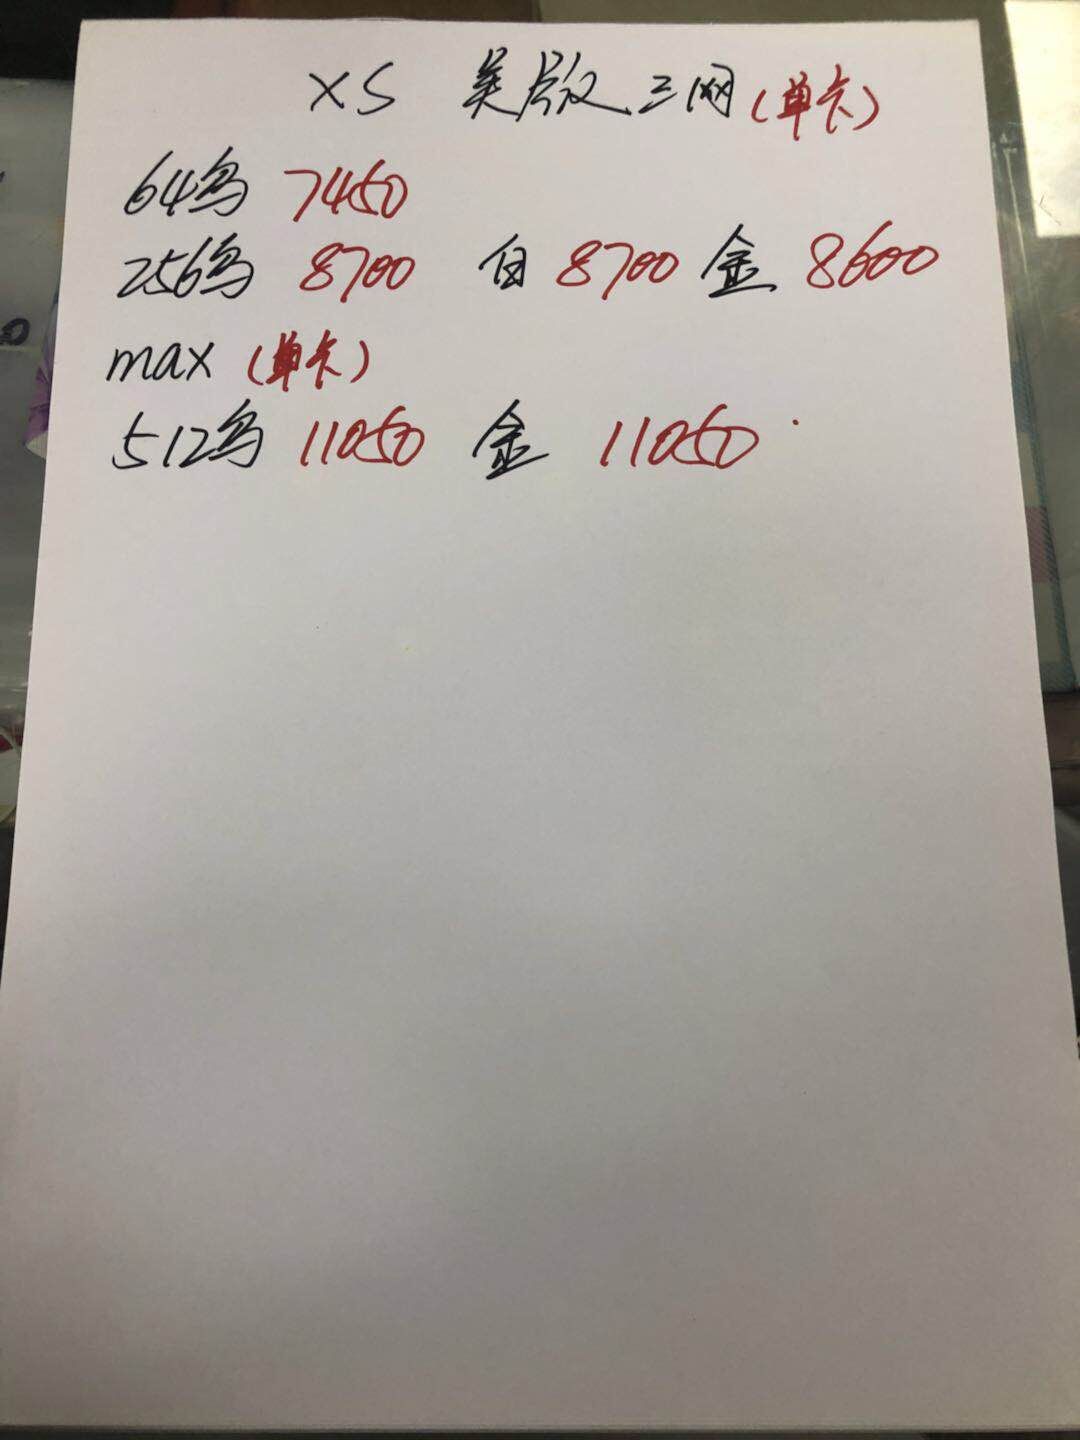 XS 美版三网(单卡)
64乌 7450
256乌 8700 白 8700 金 8600
max (单卡)
512乌 11050 金 11050